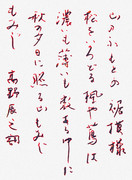 もみじ 高野辰之詞
秋の夕日に照る山もみじ
濃いも薄いも数ある中に
松をいろどる楓や蔦は
山のふもとの 裾模様